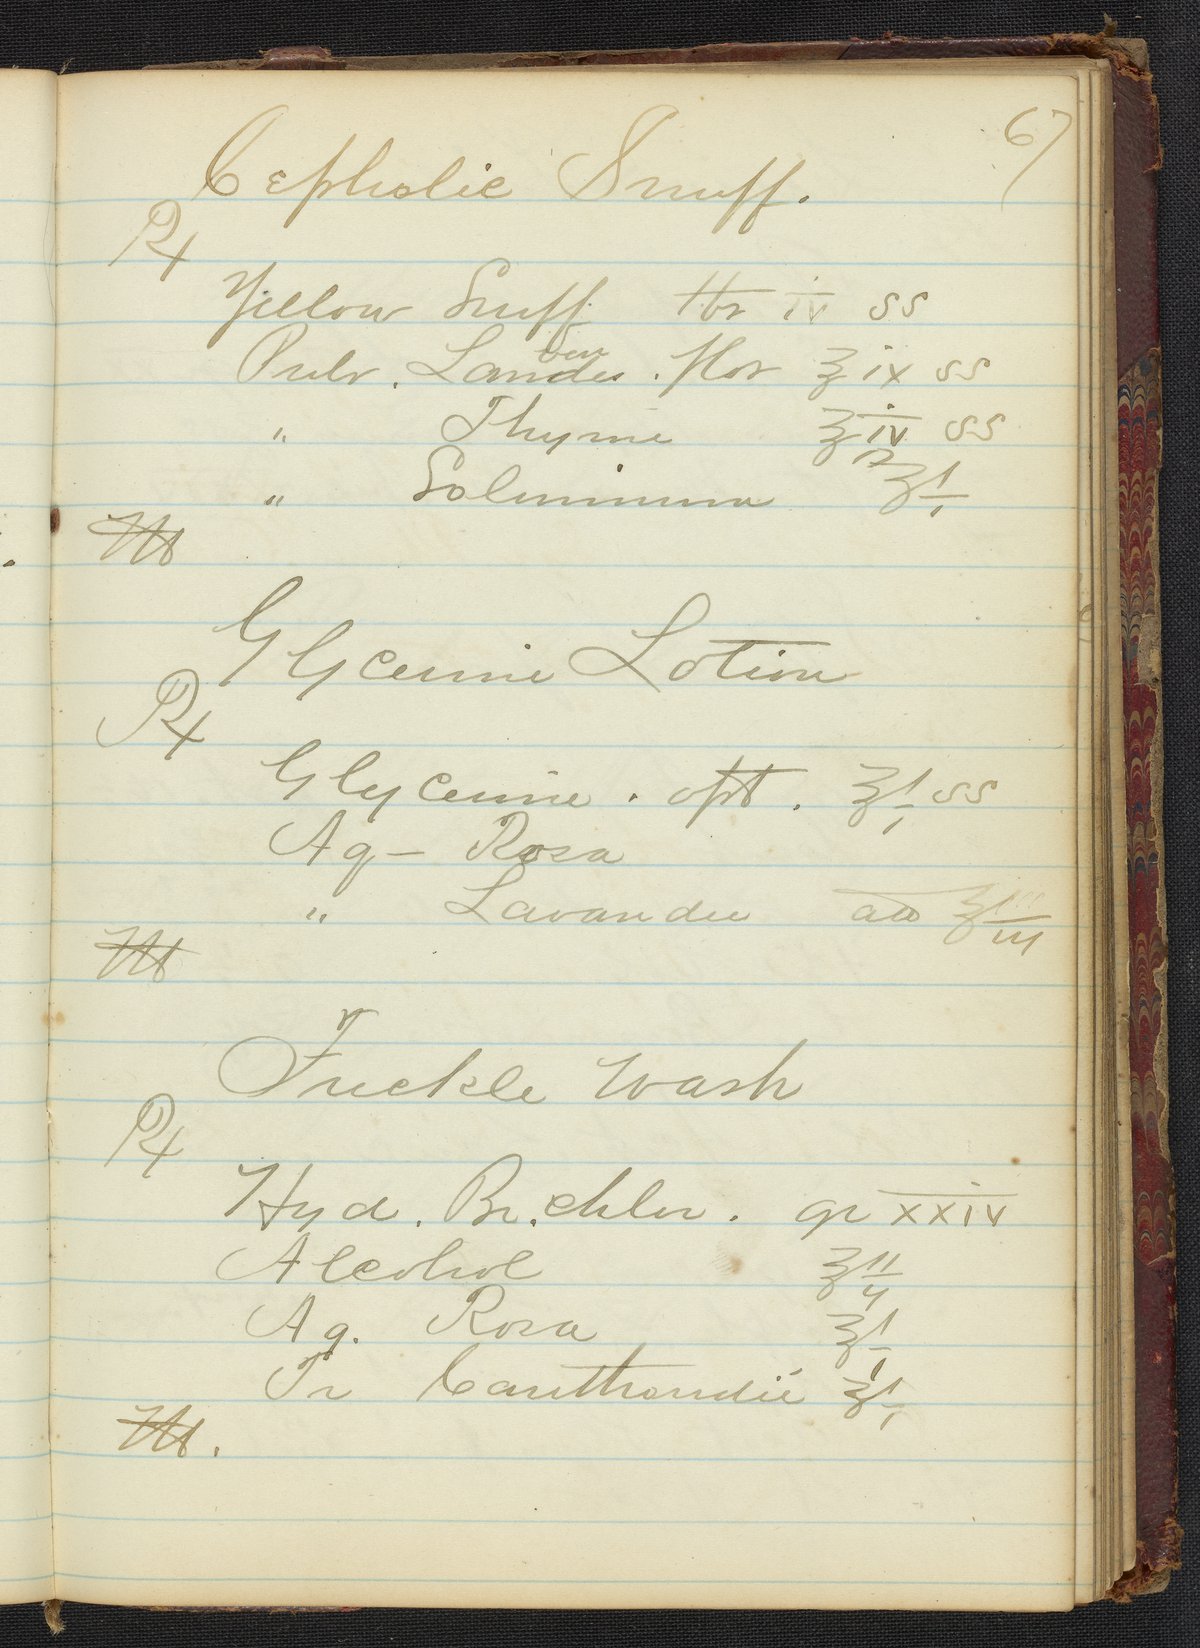 67
Cephalic Snuff.
Rx
Yellow Snuff lbr iv ss
Pulv. Landu. flor ℥ ix ss
ven
" Thyme ℥ iv ss
" ℥ i
M
Glycerine Lotion
Rx
Glycerine . opt . ℥ i ss
Aq - Rosa
" Lavandu aa ℥ iii
M
Freckle Wash
Rx
Hyd. Bi. chlor. gr xxiv
Alcohol ℥ ii
Aq. Rosa ℥ i
Tr Canthandii ℥ i
M.